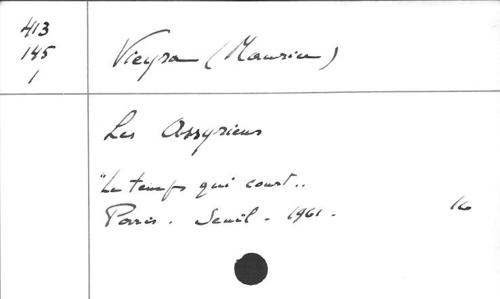 413
145
1
Vieyra (Maurice)
Les Assyriens
"Le temps qui court..
Paris. Seuil. 1961.
16